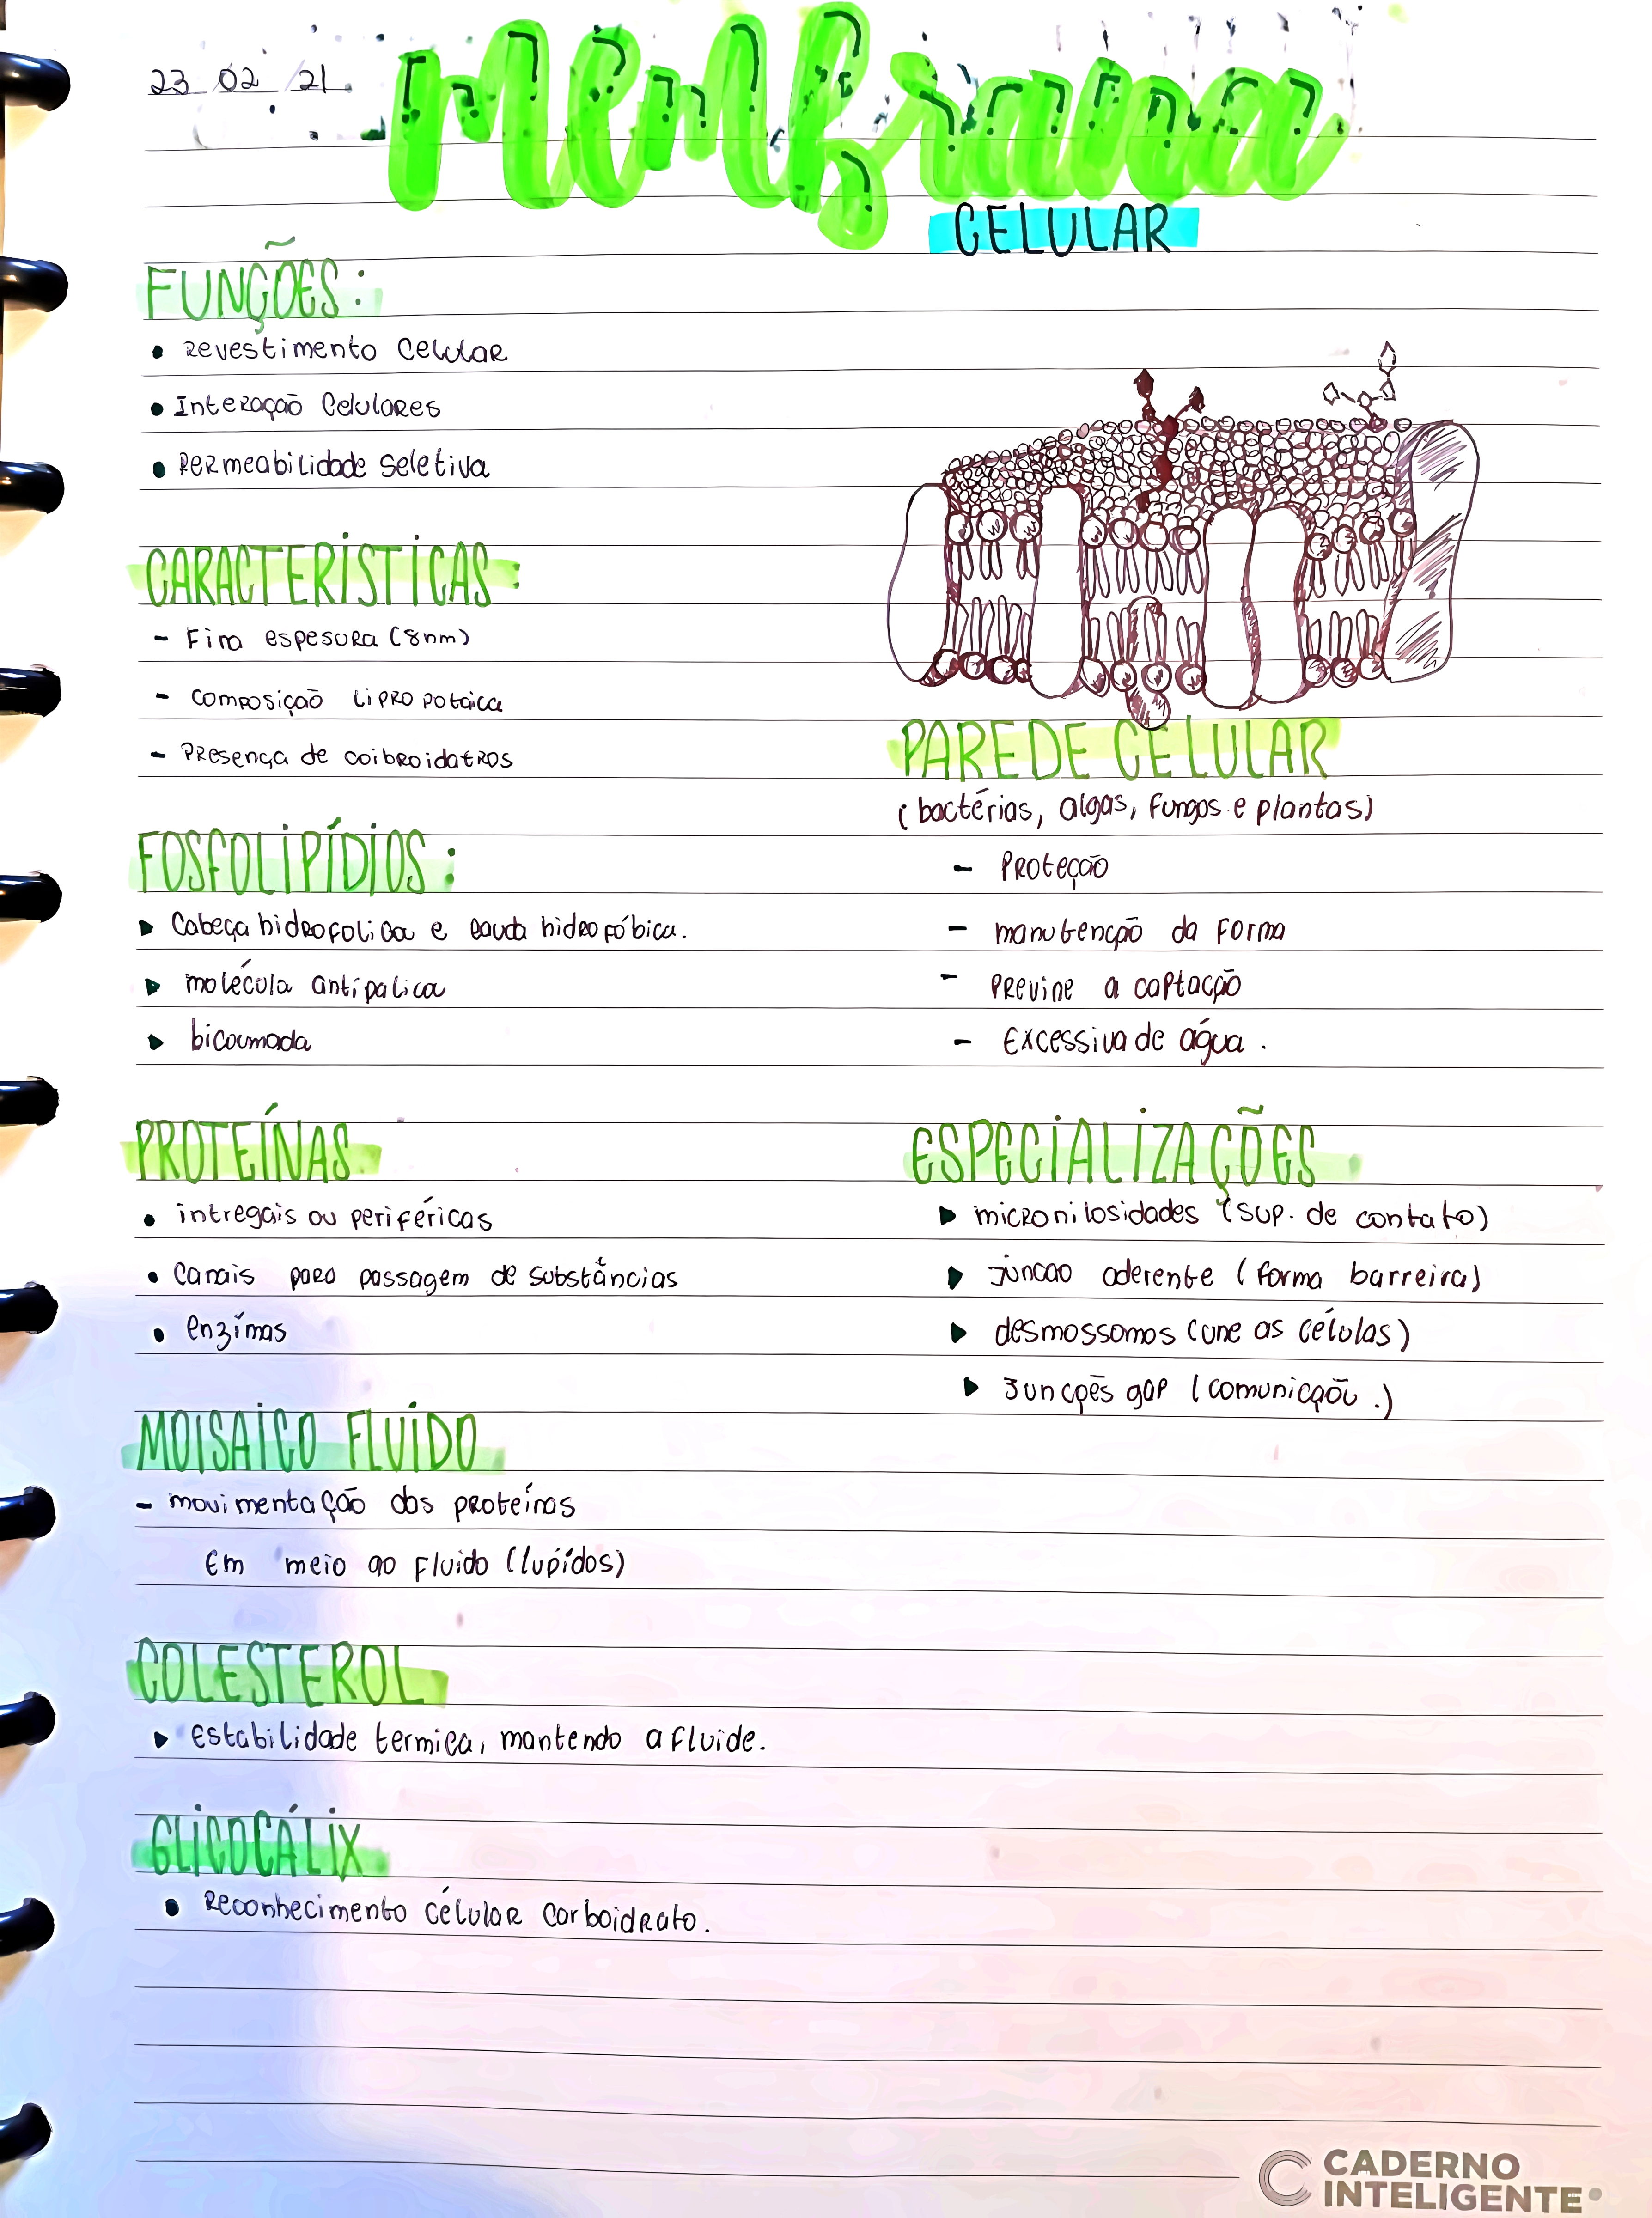 23 02 21
Membrana
CELULAR
FUNÇÕES:
• Revestimento Celular
• Interação Celulares
• Permeabilidade Seletiva
CARACTERÍSTICAS:
- Fina espesura (8nm)
- composição lipropotéica
- Presença de coibroidatros
FOSFOLIPÍDIOS:
▸ Cabeça hidrofolica e cauda hidrofóbica.
▸ molécula antipalica
▸ bicamada
PROTEÍNAS
• intregais ou periféricas
• Canais para passagem de substâncias
• enzimas
MOISAICO FLUIDO
- movimentação das proteínas
Em meio ao Fluido (lupídos)
COLESTEROL
▸ estabilidade termica, mantendo a fluide.
GLICOCÁLIX
• Reconhecimento célular carboidrato.
PAREDE CELULAR
(bactérias, algas, fungos e plantas)
- Proteção
- manutenção da forma
- Previne a captação
- Excessiva de água.
ESPECIALIZAÇÕES
▸ micronilosidades (sup. de contato)
▸ Juncao aderente (forma barreira)
▸ desmossomos (une as células)
▸ Junções gap (comunicção.)
CADERNO
INTELIGENTE